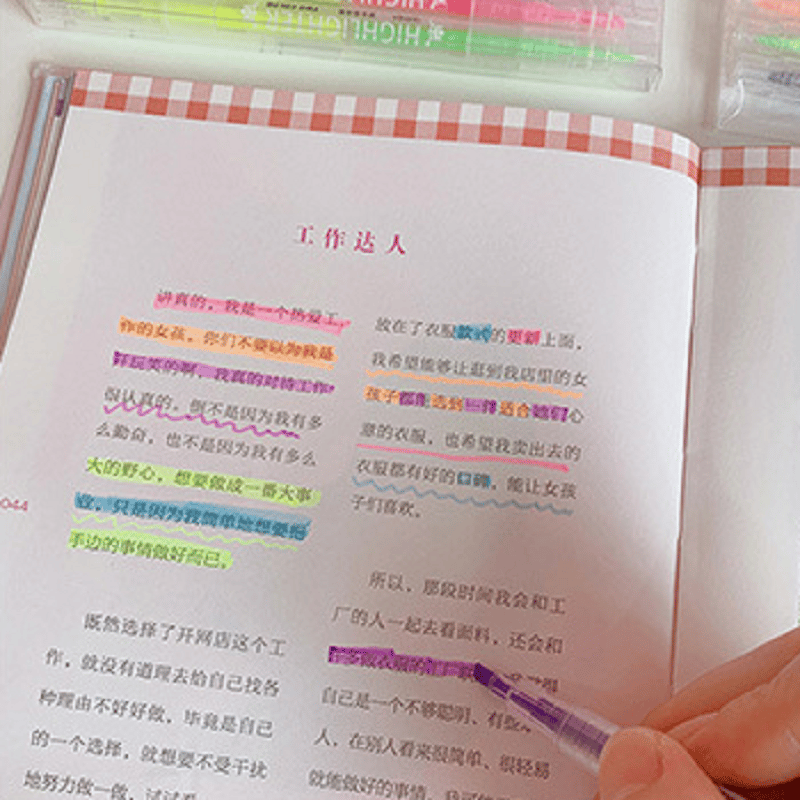 HIGHLIGHTER
工作达人
讲真的，我是一个热爱工
作的女孩，你们不要以为我是
开玩笑的啊，我真的对待工作
很认真的，倒不是因为我有多
么勤奋，也不是因为我有多么
大的野心，想要做成一番大事
业，只是因为我简单地想要把
手边的事情做好而已。
既然选择了开网店这个工
作，就没有道理去给自己找各
种理由不好好做，毕竟是自己
的一个选择，就想要不受干扰
地努力做一做，试试看
044
放在了衣服款式的更新上面，
我希望能够让逛到我店里的女
孩子都能选到一件适合她们心
意的衣服，也希望我卖出去的
衣服都有好的口碑，能让女孩
子们喜欢。
所以，那段时间我会和工
厂的人一起去看面料，还会和
许多做衣服的
自己是一个不够聪明、有些
人，在别人看来很简单、很轻易
就能做好的事情，我可能